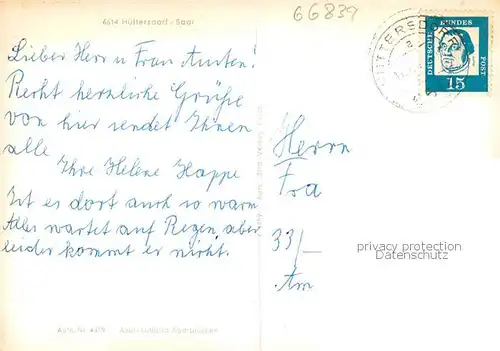 66839
6614 Hüttersdorf - Saar
Lieber Herr u Frau
Recht herzliche Grüße
von hier sendet Ihnen
alle
Ihre Helene Happe
Ist es dort auch so warm
Alles wartet auf Regen, aber
leider kommt er nicht.
DEUTSCHE BUNDESPOST
15
HÜTTERSDORF
Herrn
Fra
33/—
Am
privacy protection
Datenschutz